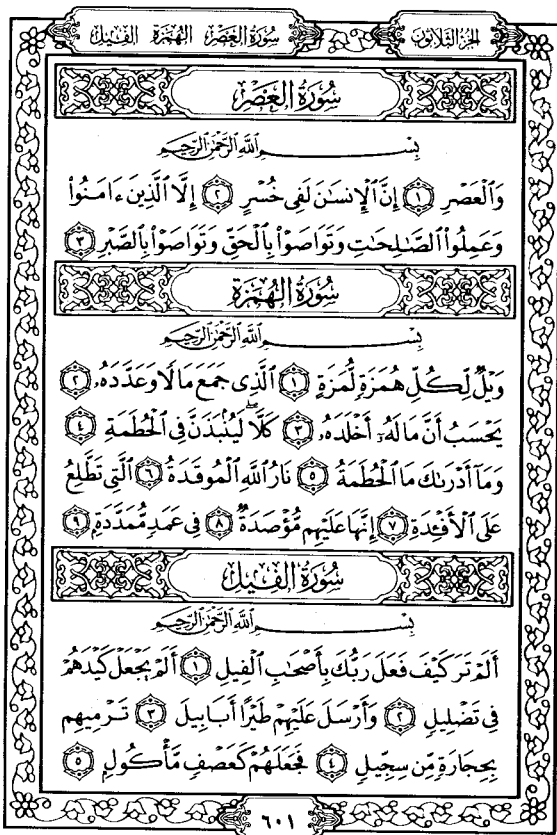 سورة العصر الهمزة الفيل
الجزء الثلاثون
سُورَةُ العَصْرِ
بِسْمِ ٱللَّهِ ٱلرَّحْمَٰنِ ٱلرَّحِيمِ
وَٱلْعَصْرِ ١ إِنَّ ٱلْإِنسَٰنَ لَفِى خُسْرٍ ٢ إِلَّا ٱلَّذِينَ ءَامَنُوا۟
وَعَمِلُوا۟ ٱلصَّٰلِحَٰتِ وَتَوَاصَوْا۟ بِٱلْحَقِّ وَتَوَاصَوْا۟ بِٱلصَّبْرِ ٣
سُورَةُ الهُمَزَةِ
بِسْمِ ٱللَّهِ ٱلرَّحْمَٰنِ ٱلرَّحِيمِ
وَيْلٌ لِّكُلِّ هُمَزَةٍ لُّمَزَةٍ ١ ٱلَّذِى جَمَعَ مَالًا وَعَدَّدَهُۥ ٢
يَحْسَبُ أَنَّ مَالَهُۥٓ أَخْلَدَهُۥ ٣ كَلَّا ۖ لَيُنۢبَذَنَّ فِى ٱلْحُطَمَةِ ٤
وَمَآ أَدْرَىٰكَ مَا ٱلْحُطَمَةُ ٥ نَارُ ٱللَّهِ ٱلْمُوقَدَةُ ٦ ٱلَّتِى تَطَّلِعُ
عَلَى ٱلْأَفْـِٔدَةِ ٧ إِنَّهَا عَلَيْهِم مُّؤْصَدَةٌ ٨ فِى عَمَدٍ مُّمَدَّدَةٍۭ ٩
سُورَةُ الفِيلِ
بِسْمِ ٱللَّهِ ٱلرَّحْمَٰنِ ٱلرَّحِيمِ
أَلَمْ تَرَ كَيْفَ فَعَلَ رَبُّكَ بِأَصْحَٰبِ ٱلْفِيلِ ١ أَلَمْ يَجْعَلْ كَيْدَهُمْ
فِى تَضْلِيلٍ ٢ وَأَرْسَلَ عَلَيْهِمْ طَيْرًا أَبَابِيلَ ٣ تَرْمِيهِم
بِحِجَارَةٍ مِّن سِجِّيلٍ ٤ فَجَعَلَهُمْ كَعَصْفٍ مَّأْكُولٍۭ ٥
٦٠١